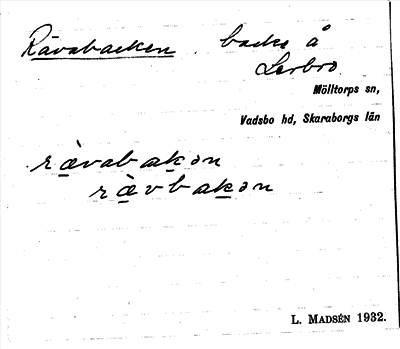 Rävabacken backe å
Lerbro
Mölltorps sn,
Vadsbo hd, Skaraborgs län
rävabakən
rävbakən
L. MADSÉN 1932.